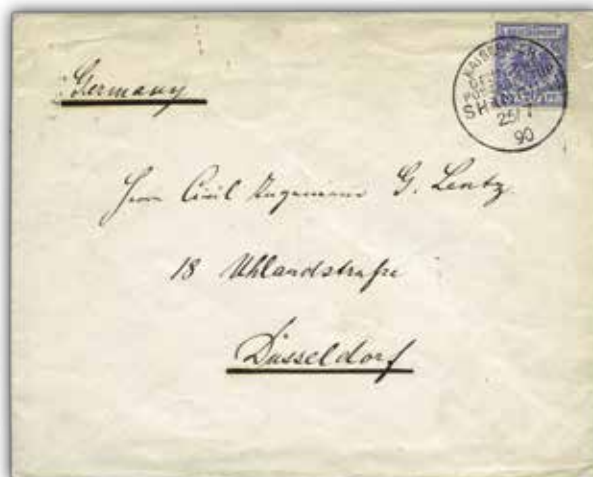 Germany
KAISERLICH
SHANGHAI
25/7
90
Herrn Civil Ingenieur G. Lentz.
18 Uhlandstraße
Düsseldorf